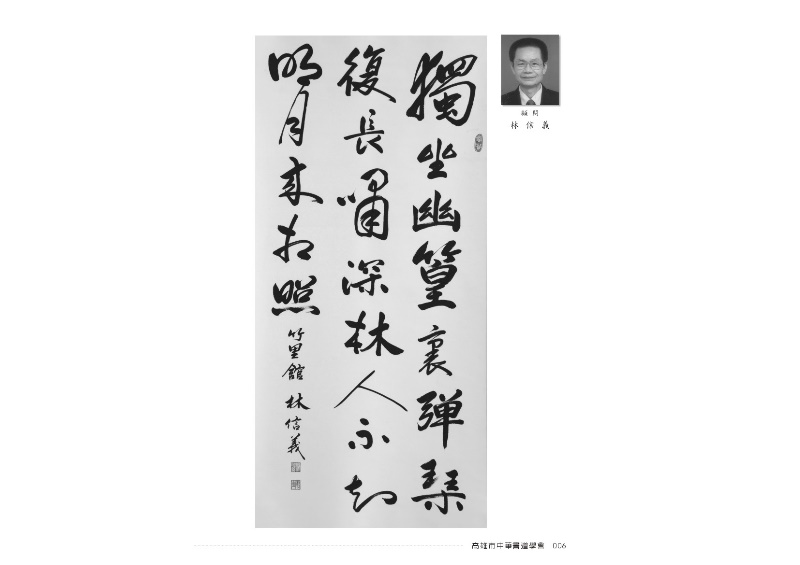 獨坐幽篁裏彈琴
復長嘯深林人不知
明月来相照
竹里館 林信義
顧問
林信義
高雄市中華書道學會 006